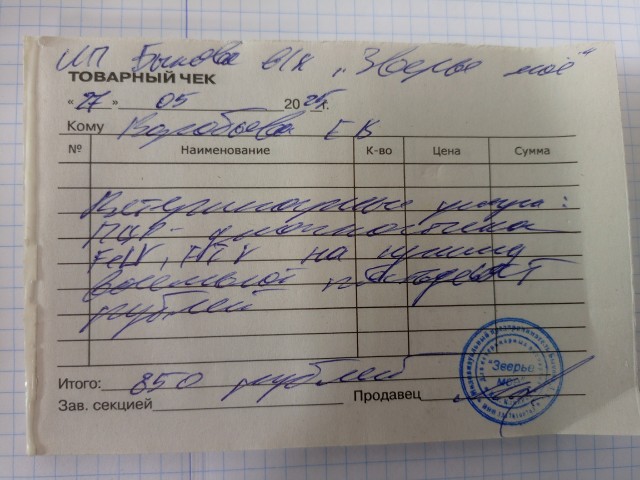 ИП Быкова в/к "Зверье моё"
ТОВАРНЫЙ ЧЕК
"27" 05 2025г.
Кому Воробьева Е В
№ Наименование К-во Цена Сумма
Ветеринарные услуги:
ПЦР-диагностика
FeLV, FIV на сумму
восемьсот пятьдесят
рублей
Итого: 850 рублей
Зав. секцией Продавец
"Зверье
мое"